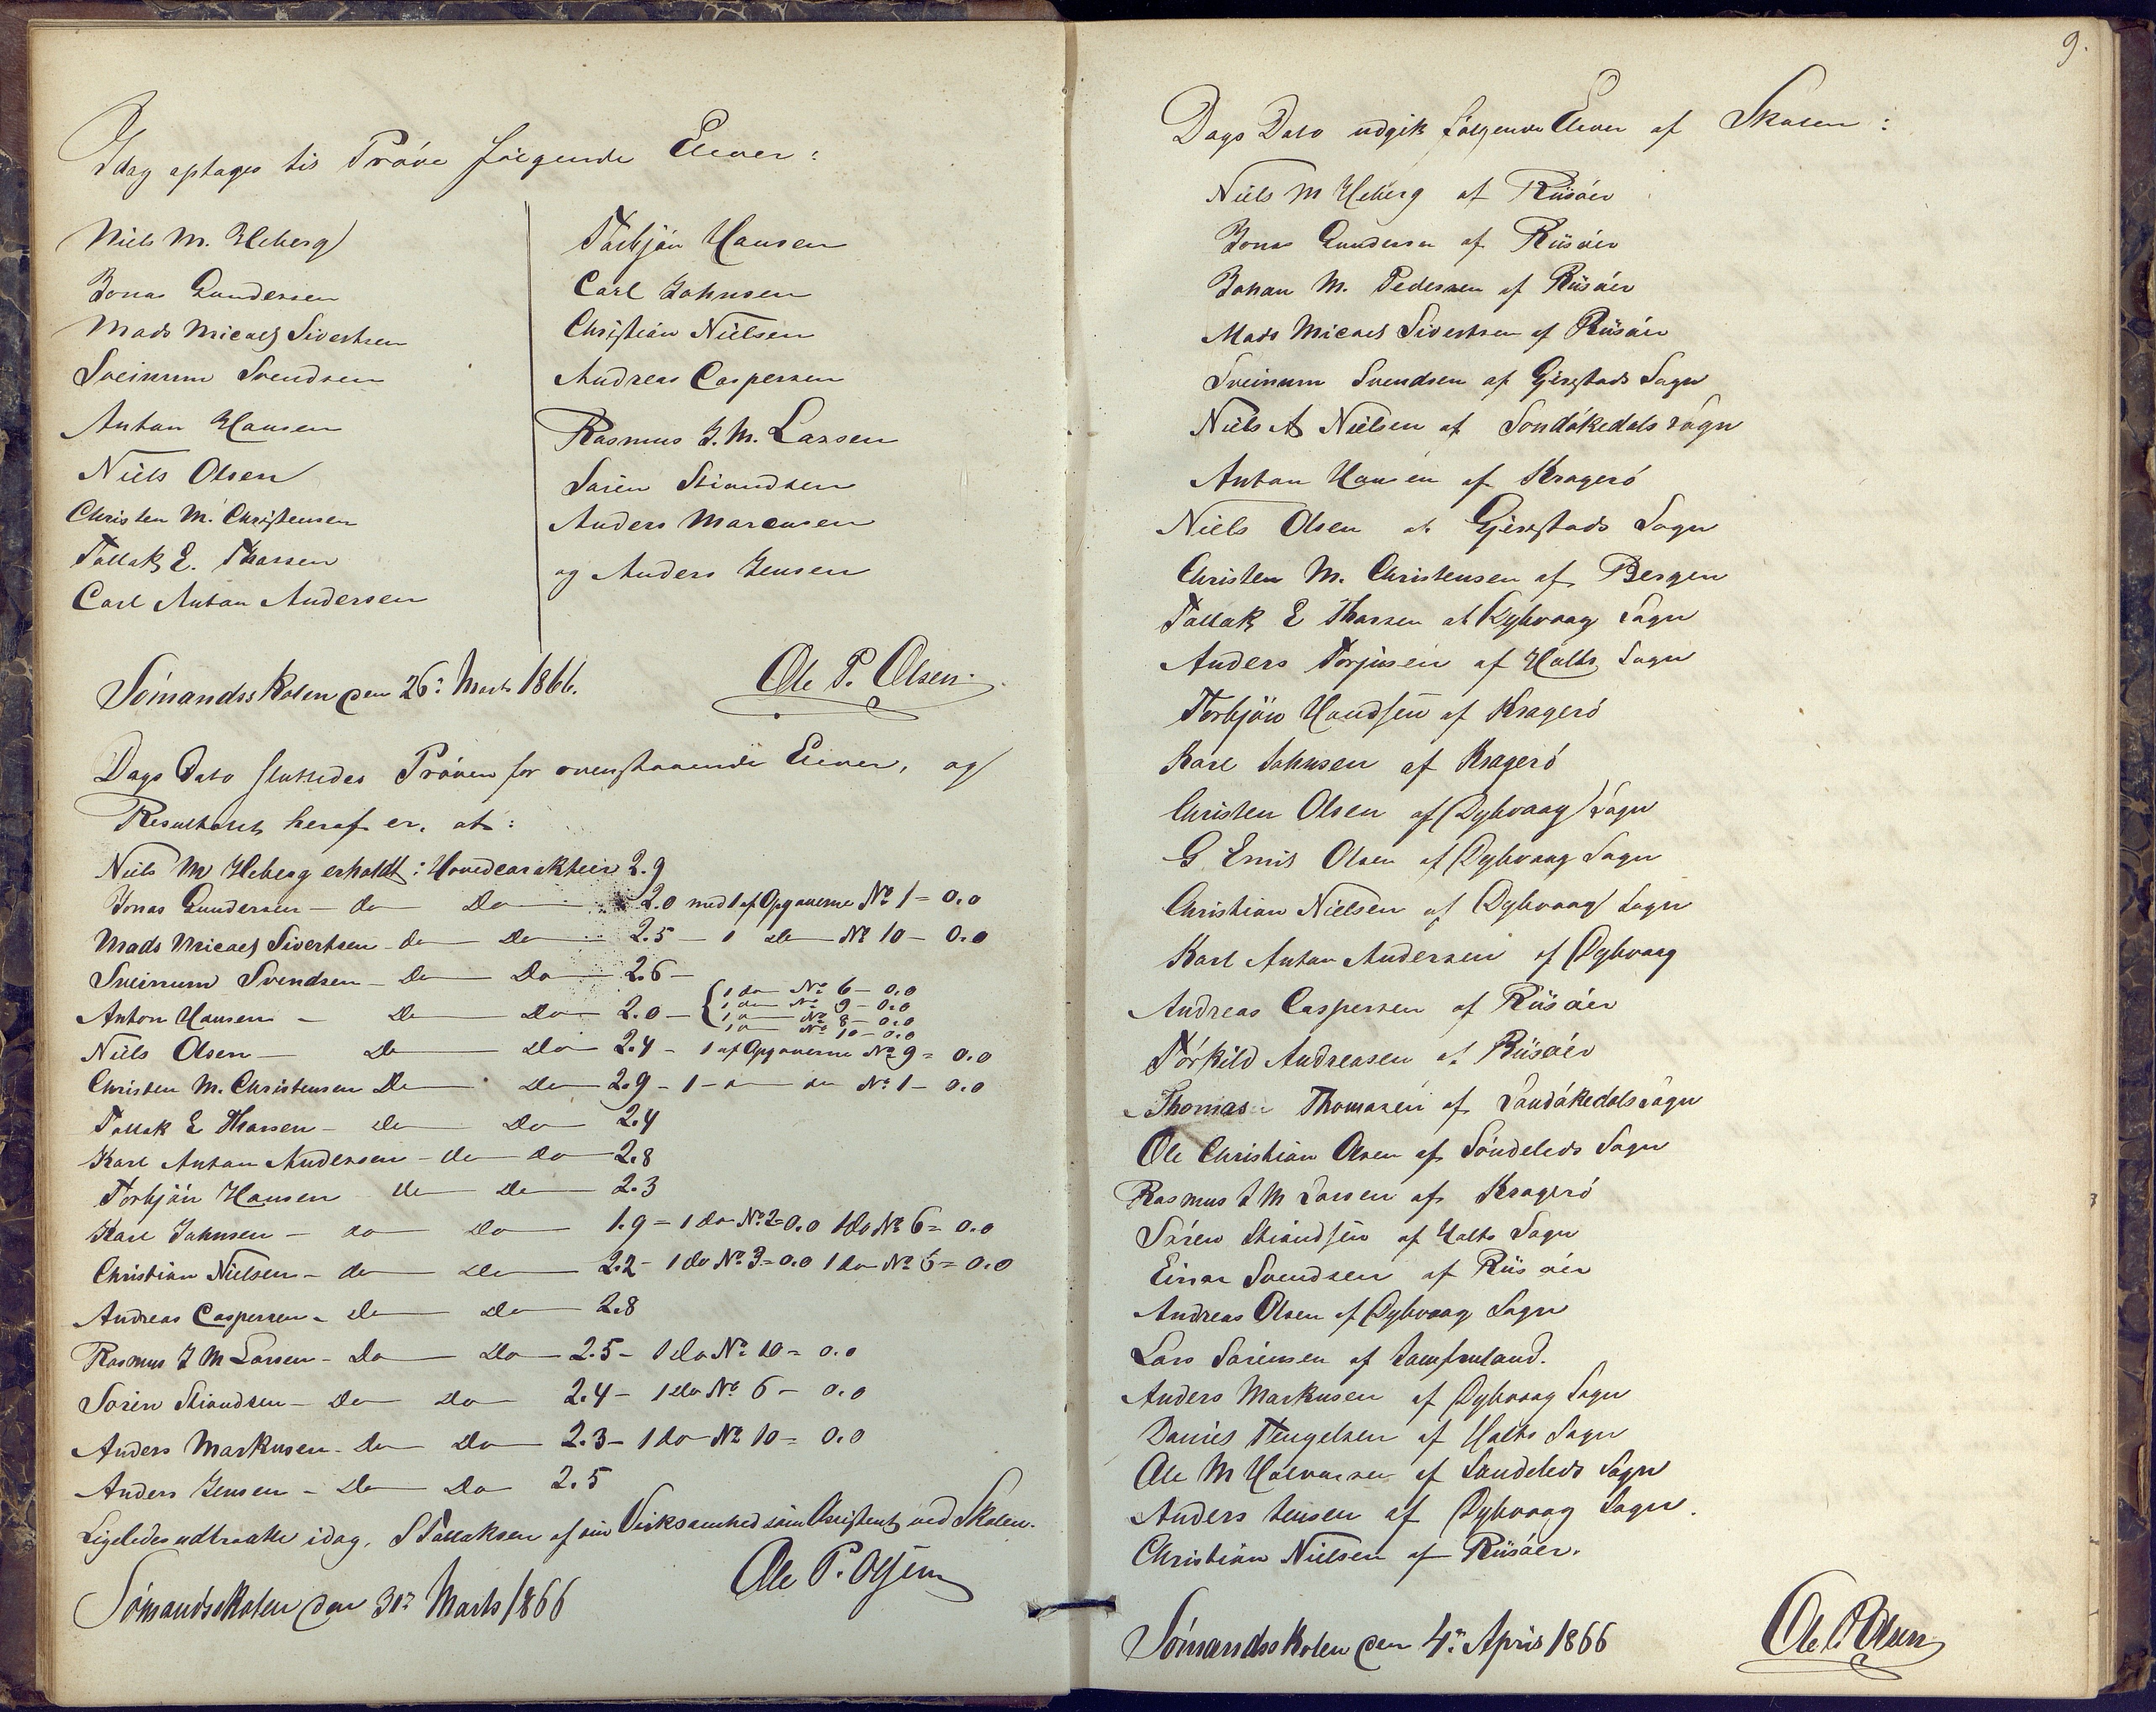 Idag optages til Prøve følgende Elever:
Niels M. Heberg
Jonas Gundersen
Mads Micael Sivertsen
Sveinum Svendsen
Anton Hansen
Niels Olsen
Christen M. Christensen
Tallak E. Thorsen
Carl Anton Andersen
Torbjön Hansen
Carl Johnsen
Christian Nielsen
Andreas Caspersen
Rasmus J. M. Larsen
Sören Stiandsen
Anders Marcusen
og Anders Jensen
Sömandsskolen den 26: Marts 1866.
Ole P. Olsen
Dags Dato sluttedes Pröven for ovenstaaende Elever, og
Resultatet heraf er, at:
Niels M Heberg erholdt: Hovedcarakteir 2.9
Jonas Gundersen – do – Do – 2.0 med 1 af Opgaverne No 1 = 0.0
Mads Micael Sivertsen – do – Do – 2.5 – 1 do – No 10 – 0.0
Sveinum Svendsen – Do – Do – 2.6 –
Anton Hansen – Do – Do – 2.0 – { 1 do – No 6 – 0.0
1 do – No 9 – 0.0
1 do – No 8 – 0.0
1 do – No 10 – 0.0
Niels Olsen – Do – Do – 2.4 – 1 af Opgaverne No 9 = 0.0
Christen M. Christensen Do – Do – 2.9 – 1 – do No 1 – 0.0
Tallak E Thorsen – do – Do – 2.4
Karl Anton Andersen – do – do – 2.8
Torbjön Hansen do – Do – 2.3
Karl Johnsen – do – Do – 1.9 = 1 do No 2 = 0.0 1 do No 6 = 0.0
Christian Nielsen – do – Do – 2.2 – 1 do No 3 = 0.0 1 do No 6 = 0.0
Andreas Caspersen – Do – Do – 2.8
Rasmus J M Larsen – Do – Do – 2.5 – 1 do No 10 = 0.0
Sören Stiandsen – Do – Do – 2.4 – 1 do No 6 – 0.0
Anders Markusen – Do – Do – 2.3 – 1 do No 10 = 0.0
Anders Jensen – Do – Do 2.5
Ligeledes udtraadte idag, S Tallaksen af sin Virksomhed som Assistent ved Skolen.
Sömandsskolen den 31: Marts 1866
Ole P. Olsen
9.
Dags Dato udgik følgende Elever af Skolen:
Niels M Heberg af Riisöer
Jonas Gundersen af Riisöer
Johan M. Pedersen af Riisöer
Mads Micael Sivertsen af Riisöer
Sveinum Svendsen af Gjerstads Sogn
Niels A Nielsen af Sondökedals Sogn
Anton Hansen af Kragerö
Niels Olsen af Gjerstads Sogn
Christen M. Christensen af Bergen
Tallak E Thorsen af Dybvaag Sogn
Anders Torjusen af Holts Sogn
Torbjön Handsen af Kragerö
Karl Johnsen af Kragerö
Christen Olsen af Dybvaag Sogn
G. Emil Olsen af Dybvaag Sogn
Christian Nielsen af Dybvaag Sogn
Karl Anton Andersen af Dybvaag
Andreas Caspersen af Riisöer
Törkild Andreasen af Riisöer
Thomas Thomasen af Sandökedals Sogn
Ole Christian Olsen af Söndeleds Sogn
Rasmus J M Larsen af Kragerö
Sören Stiandsen af Holts Sogn
Einar Svendsen af Riisöer
Andreas Olsen af Dybvaag Sogn
Lars Sörensen af Jomfruland.
Anders Markusen af Dybvaag Sogn
Daniel Tengelsen af Holts Sogn
Ole M Halvorsen af Söndeleds Sogn
Anders Jensen af Dybvaag Sogn.
Christian Nielsen af Riisöer.
Sömandsskolen den 4: April 1866
Ole P. Olsen